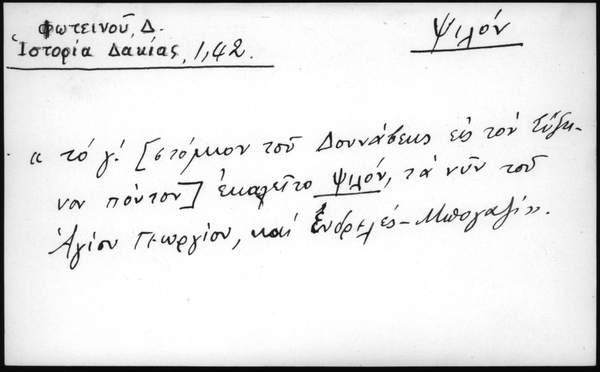 Φωτεινοῦ, Δ.
Ἱστορία Δακίας, 1,42.
Ψιλόν
« τό γ! [στόμιον τοῦ Δουνάβεως εἰς τόν Εὔξει-
νον πόντον] ἐκαλεῖτο Ψιλόν, τά νῦν τοῦ
Ἁγίου Γεωργίου, καί Ἐνδρελές-Μπογαζί».